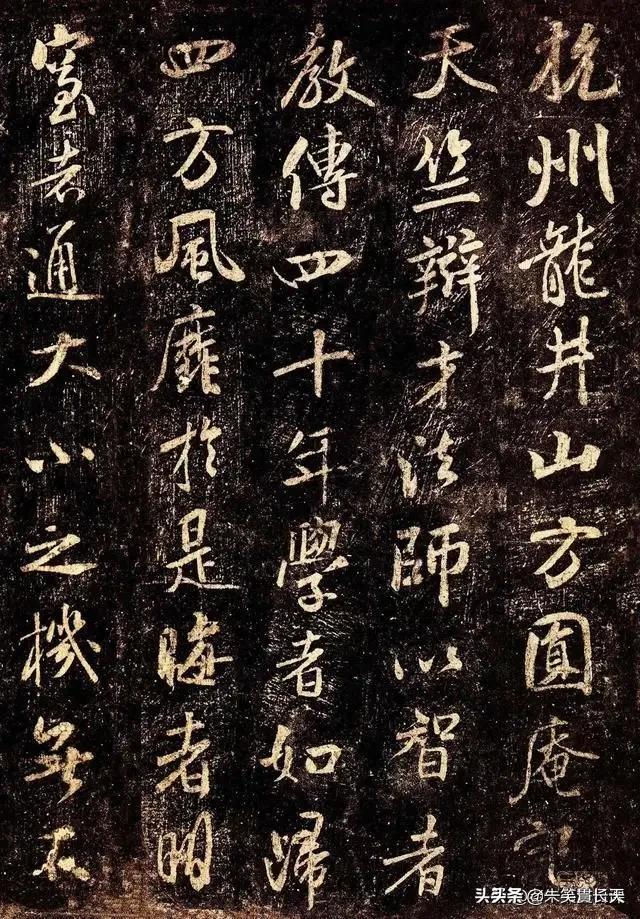 杭州龍井山方圓庵記
天竺辯才法師以智者
教傳四十年學者如歸
四方風靡於是晦者明
窒者通大小之機無不
头条 @朱笑貫长天